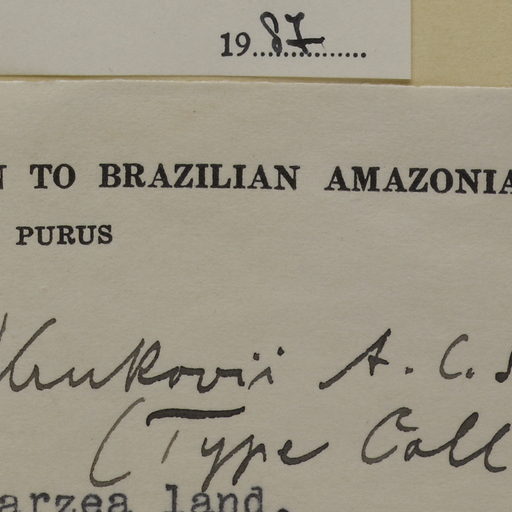 19 87
N TO BRAZILIAN AMAZONIA
PURUS
Krukovii A. C. S
(Type Coll
arzea land.